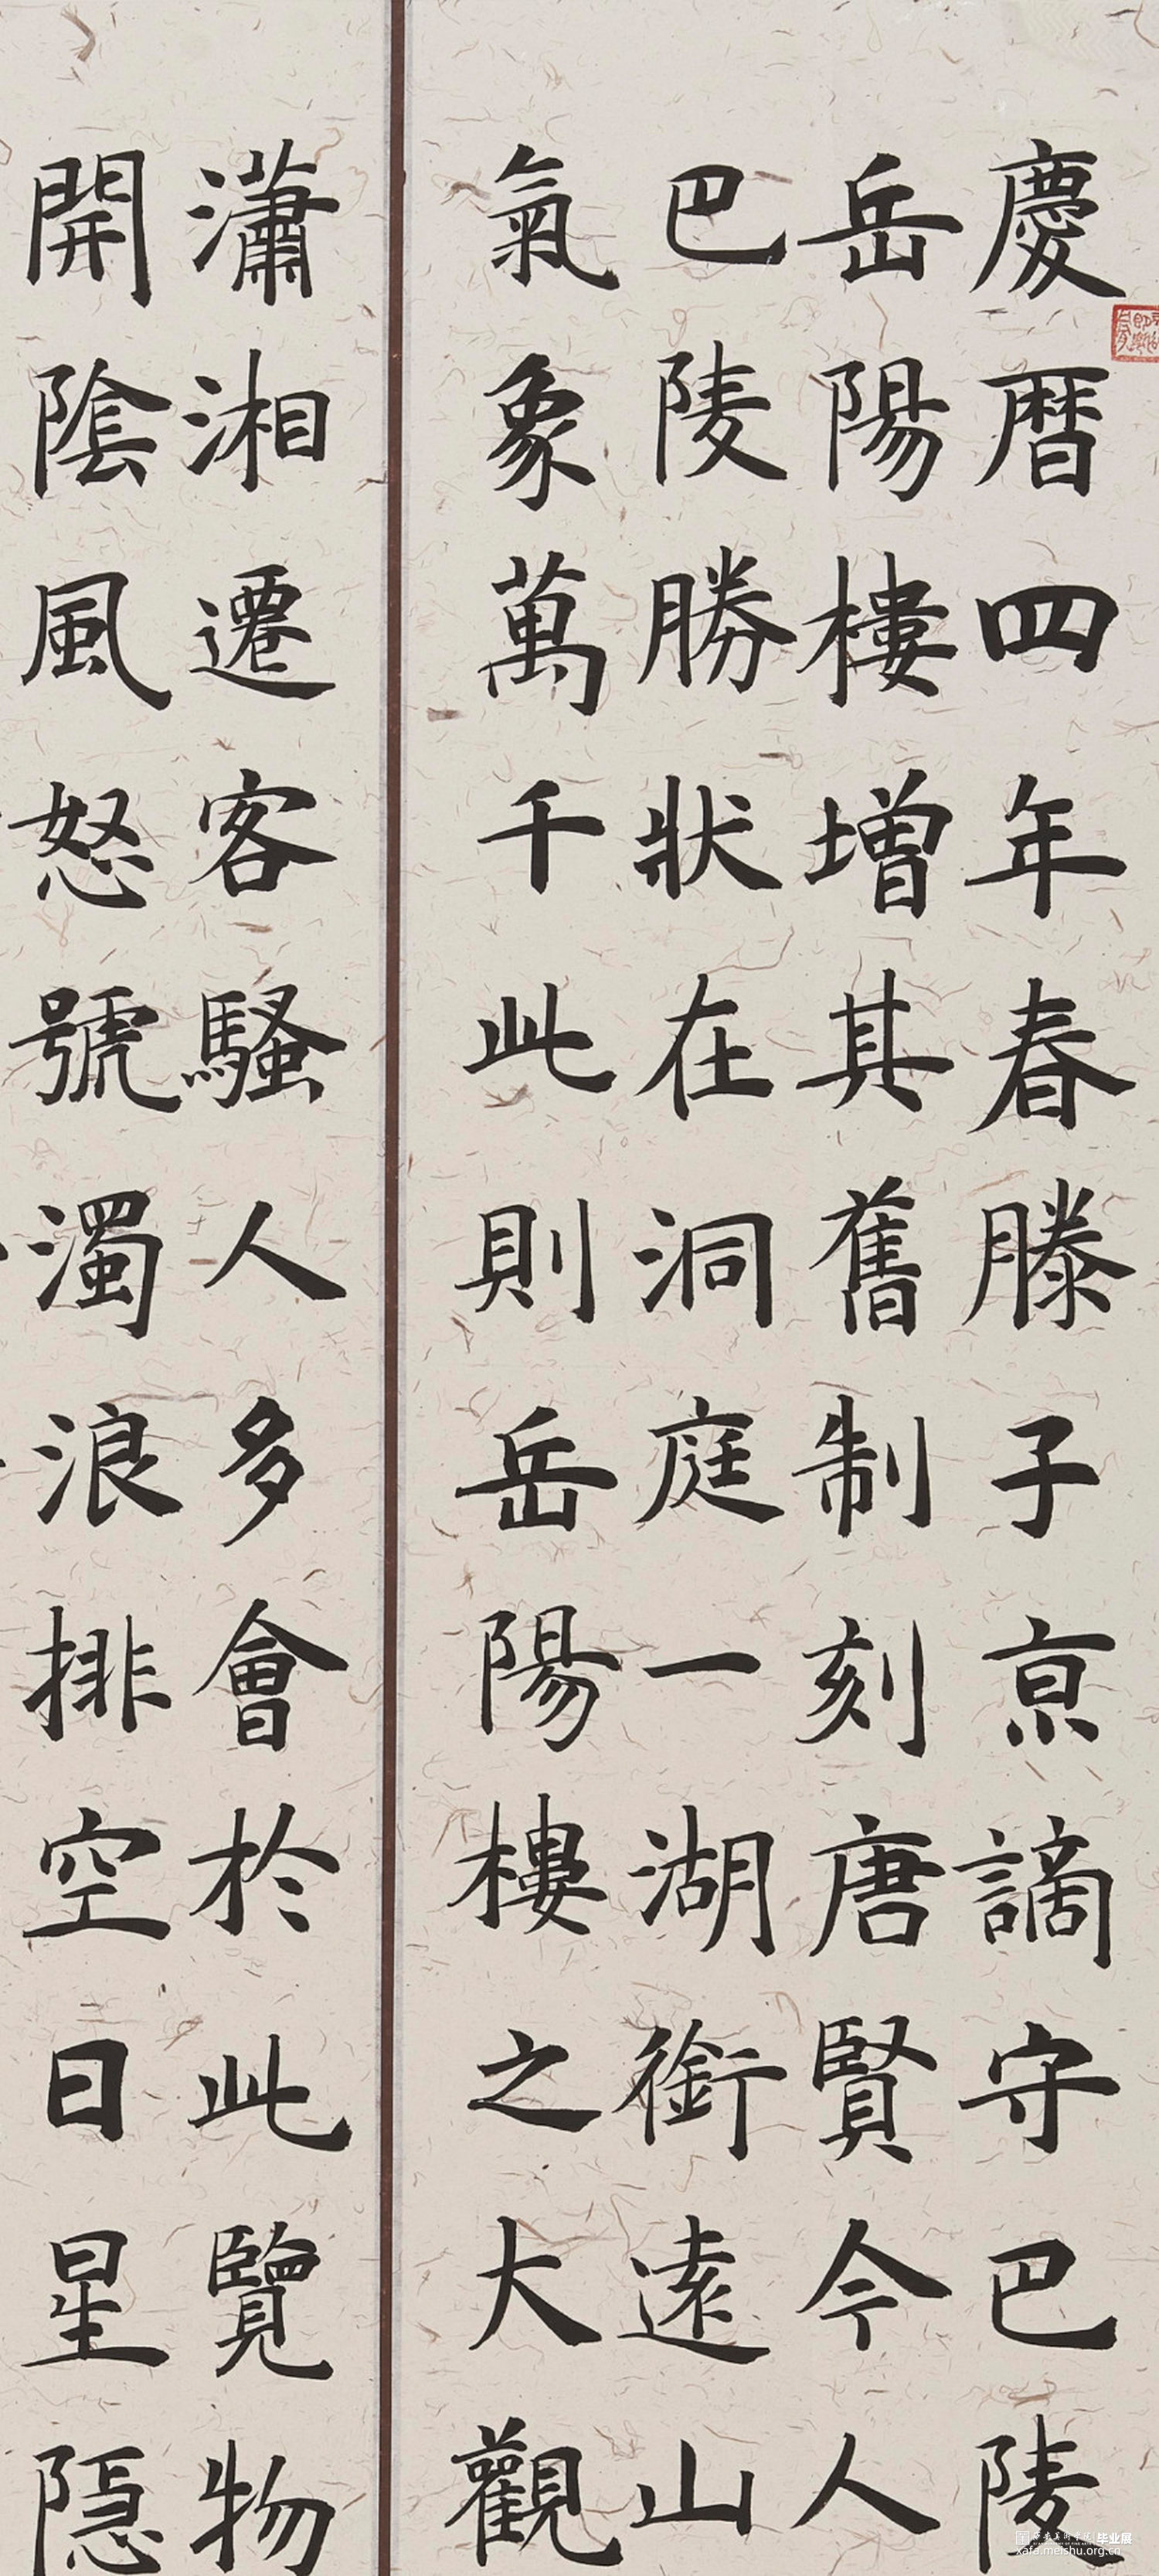 慶曆四年春滕子京謫守巴陵
岳陽樓增其舊制刻唐賢今人
巴陵勝狀在洞庭一湖銜遠山
氣象萬千此則岳陽樓之大觀
瀟湘遷客騷人多會於此覽物
開陰風怒號濁浪排空日星隱
毕业展
xafa.meishu.org.cn